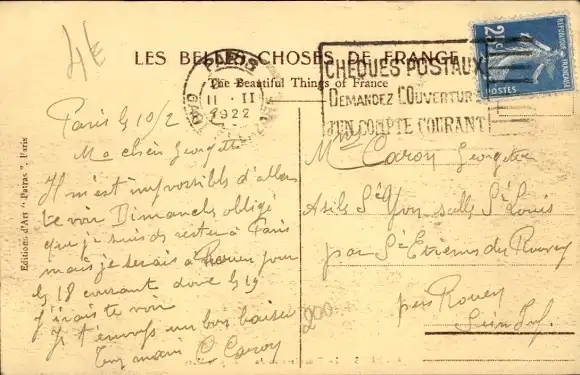 4E
LES BELLES CHOSES DE FRANCE
The Beautiful Things of France
PARIS
11 · II
1922
CHÈQUES POSTAUX
DEMANDEZ L'OUVERTURE
D'UN COMPTE COURANT
25c
REPUBLIQUE FRANÇAISE
POSTES
Editions d'Art "Patras", Paris
Paris le 10/2
Ma chère Georgette
Il m'est impossible d'aller
te voir Dimanche obligé
que je suis de rester à Paris
mais je serais à Rouen pour
le 18 courant donc le 19
j'irais te voir
Je t'envoye un bon baiser
Ton C Caron
Mme Caron Georgette
Asile St Yon salle St Louis
par St Etienne du Rouvray
près Rouen
Sein Inf.
200